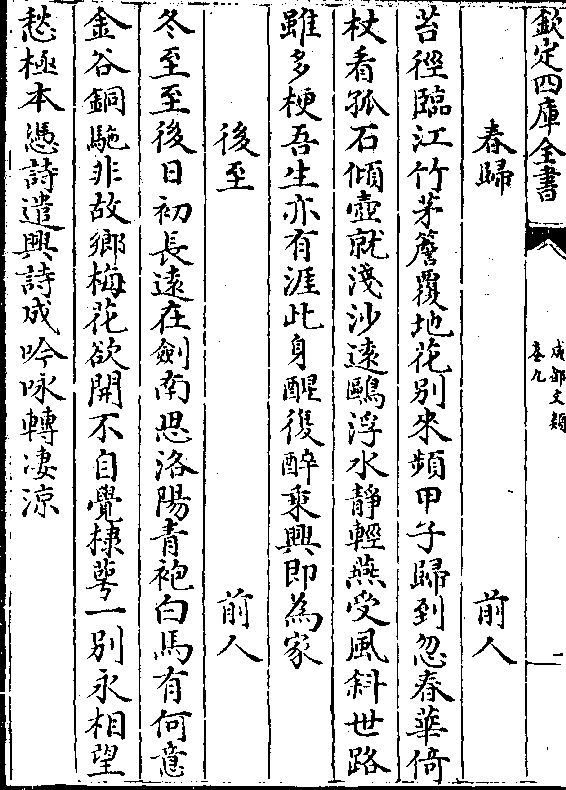 欽定四庫全書
成都文類
卷九
一
春歸　前人
苔徑臨江竹茅簷覆地花別來頻甲子歸到忽春華倚
杖看孤石傾壺就淺沙遠鷗浮水靜輕燕受風斜世路
雖多梗吾生亦有涯此身醒復醉乘興即為家
後至　前人
冬至至後日初長遠在劍南思洛陽青袍白馬有何意
金谷銅駞非故鄉梅花欲開不自覺棣萼一別永相望
愁極本憑詩遣興詩成吟咏轉凄涼